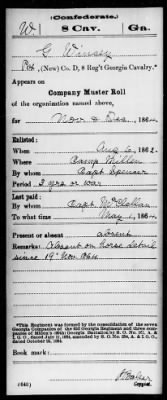 (Confederate.)
W 8 Cav. Ga.
G Winsey
Pvt, (New) Co. D, 8 Reg't Georgia Cavalry.*
Appears on
Company Muster Roll
of the organization named above,
for Nov & Dec, 1864
Enlisted:
When Aug 6, 1862.
Where Camp Millen
By whom Capt Spencer
Period 3 yrs or war
Last paid:
By whom Capt McClellan
To what time May 1, 1864
Present or absent absent
Remarks: Absent on horse detail
since 19" Nov 1864
*This Regiment was formed by the consolidation of the seven
Georgia Companies of the 62d Georgia Regiment and three companies
Book mark:
(646)
Copyist.